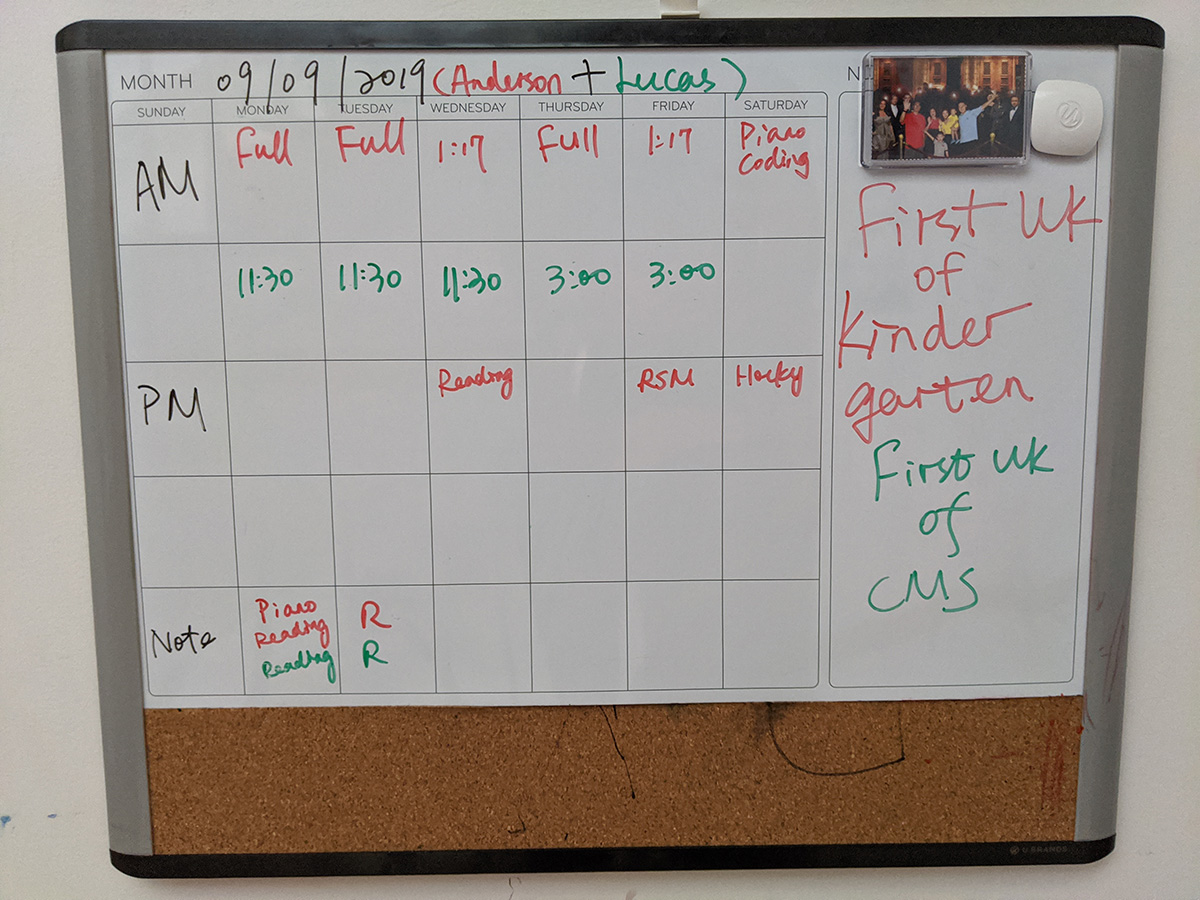 MONTH 09/09/2019 (Anderson + Lucas)
SUNDAY MONDAY TUESDAY WEDNESDAY THURSDAY FRIDAY SATURDAY
AM Full Full 1:17 Full 1:17 Piano
Coding
11:30 11:30 11:30 3:00 3:00
PM Reading RSM Hocky
Note Piano R
Reading
Reading R
First Wk
of
Kinder
garten
First Wk
of
CMS
U BRANDS